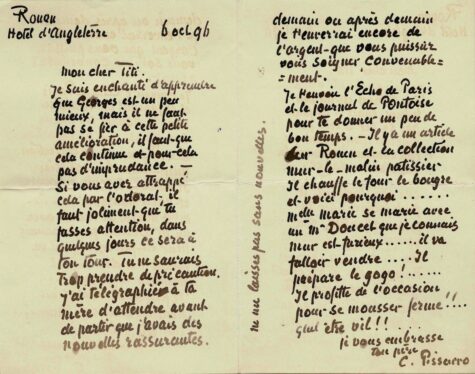 Rouen
Hotel d'Angleterre 6 oct 96
mon cher Titi.
Je suis enchanté d'apprendre
que Georges est un peu
mieux, mais il ne faut
pas se fier à cette petite
amélioration, il faut que
cela continue et pour cela
pas d'imprudance. —
Si vous avez attrappé
cela par l'odorat, il
faut joliment que tu
passes attention, dans
quelques jours ce sera à
ton tour. Tu ne saurais
trop prendre de précaution.
J'ai télégraphié à ta
mère d'attendre avant
de partir que j'avais des
nouvelles rassurantes.
ne me laisses pas sans nouvelles.
demain ou après demain
je t'enverrai encore de
l'argent que vous puissiez
vous soigner convenable=
=ment.
Je t'envoie l'Echo de Paris
et le journal de Pontoise
pour te donner un peu de
bon temps. — Il y a un article
sur Rouen et la collection
mur — le — malin patissier
Il chauffe le four le bougre
et voici pourquoi ......
melle marie se marie avec
un Mr Doucet que je connais
mur est furieux ..... il va
falloir vendre .... Il
prépare le gogo! .....
Il profitte de l'occasion
pour se mousser ferme!!..
quel être vil!!..
je vous embrasse
ton père
C. Pissarro